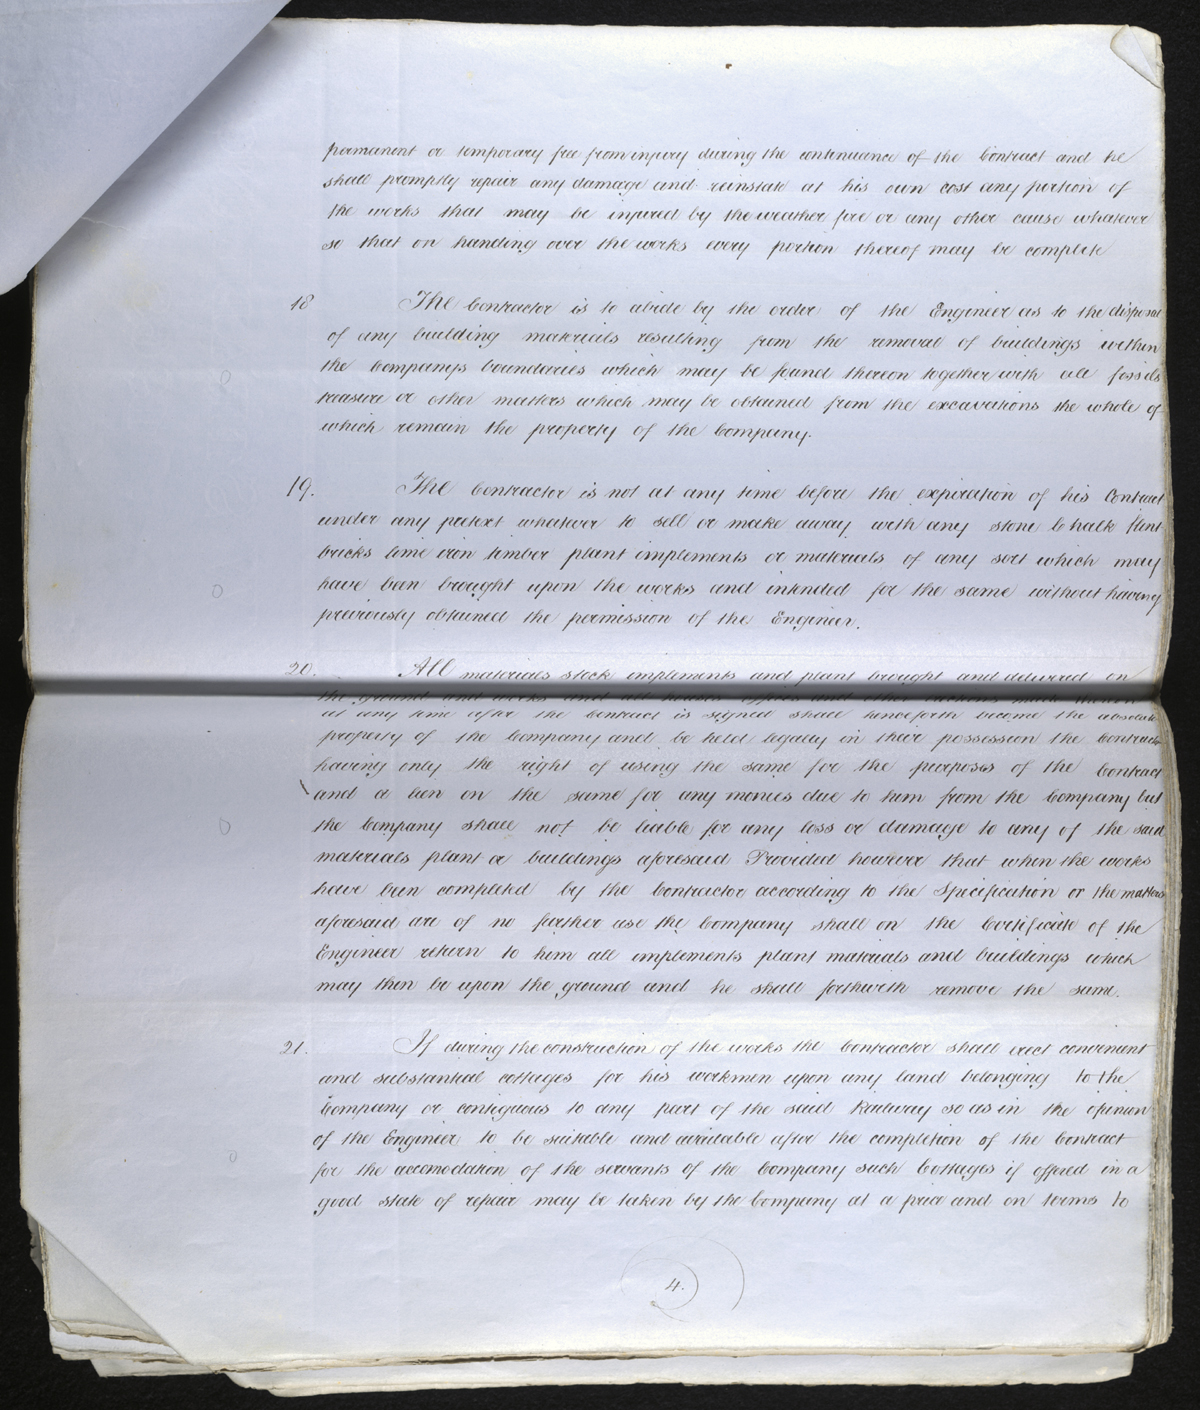 permanent or temporary free from injury during the continuance of the Contract and he
shall promptly repair any damage and reinstate at his own cost any portion of
the works that may be injured by the weather fire or any other cause whatever
so that on handing over the works every portion thereof may be complete
18 The Contractor is to abide by the order of the Engineer as to the disposal
of any building materials resulting from the removal of buildings within
the Companys boundaries which may be found thereon together with all fossils
treasure or other matters which may be obtained from the excavations the whole of
which remain the property of the Company.
19. The Contractor is not at any time before the expiration of his Contract
under any pretext whatever to sell or make away with any stone Chalk flint
bricks lime iron timber plant implements or materials of any sort which may
have been brought upon the works and intended for the same without having
previously obtained the permission of the Engineer.
20. All materials stock implements and plant brought and delivered on
the ground and works and all houses offices and other erections made thereon
at any time after the Contract is signed shall henceforth become the absolute
property of the Company and be held legally in their possession the Contractor
having only the right of using the same for the purposes of the Contract
and a lien on the same for any monies due to him from the Company but
the Company shall not be liable for any loss or damage to any of the said
materials plant or buildings aforesaid Provided however that when the works
have been completed by the Contractor according to the Specification or the matters
aforesaid are of no further use the Company shall on the Certificate of the
Engineer return to him all implements plant materials and buildings which
may then be upon the ground and he shall forthwith remove the same.
21. If during the construction of the works the Contractor shall erect convenient
and substantial cottages for his workmen upon any land belonging to the
Company or contiguous to any part of the said Railway so as in the opinion
of the Engineer to be suitable and available after the completion of the Contract
for the accomodation of the servants of the Company such Cottages if offered in a
good state of repair may be taken by the Company at a price and on terms to
4.